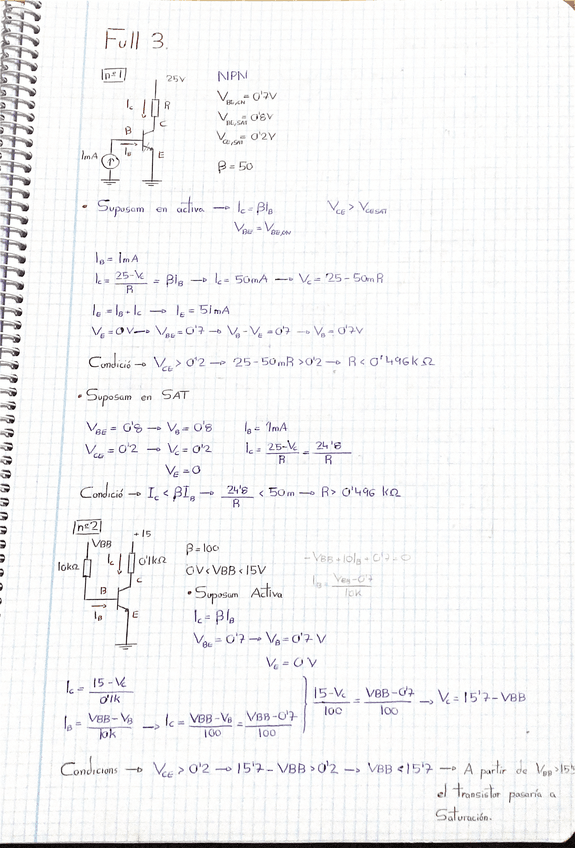 Full 3.
nº1
25V
NPN
I_C
R
V_BE,ON = 0'7V
C
V_BE,SAT = 0'8V
B
V_CE,SAT = 0'2V
1mA
I_B
E
β = 50
• Suposam en activa → I_C = βI_B V_CE > V_CESAT
V_BE = V_BE,ON
I_B = 1mA
I_C = (25-V_C)/R = βI_B → I_C = 50mA → V_C = 25-50mR
I_E = I_B + I_C → I_E = 51mA
V_E = 0V → V_BE = 0'7 → V_B - V_E = 0'7 → V_B = 0'7V
Condició → V_CE > 0'2 → 25-50mR > 0'2 → R < 0'496 kΩ
• Suposam en SAT
V_BE = 0'8 → V_B = 0'8 I_B = 1mA
V_CE = 0'2 → V_C = 0'2 I_C = (25-V_C)/R = 24'8/R
V_E = 0
Condició → I_C < βI_B → 24'8/R < 50m → R > 0'496 kΩ
nº2
VBB
+15
β = 100
10kΩ
I_C
0'1kΩ
0V < VBB < 15V
-VBB + 10I_B + 0'7 = 0
C
• Suposam Activa
I_B = (VBB - 0'7)/10k
B
E
I_B
I_C = βI_B
V_BE = 0'7 → V_B = 0'7 V
V_E = 0V
I_C = (15-V_C)/0'1k
(15-V_C)/100 = (VBB-0'7)/100 → V_C = 15'7 - VBB
I_B = (VBB-V_B)/10k → I_C = (VBB-V_B)/100 = (VBB-0'7)/100
Condicions → V_CE > 0'2 → 15'7 - VBB > 0'2 → VBB < 15'7 → A partir de V_BB > 15'
el transistor pasaría a
Saturación.